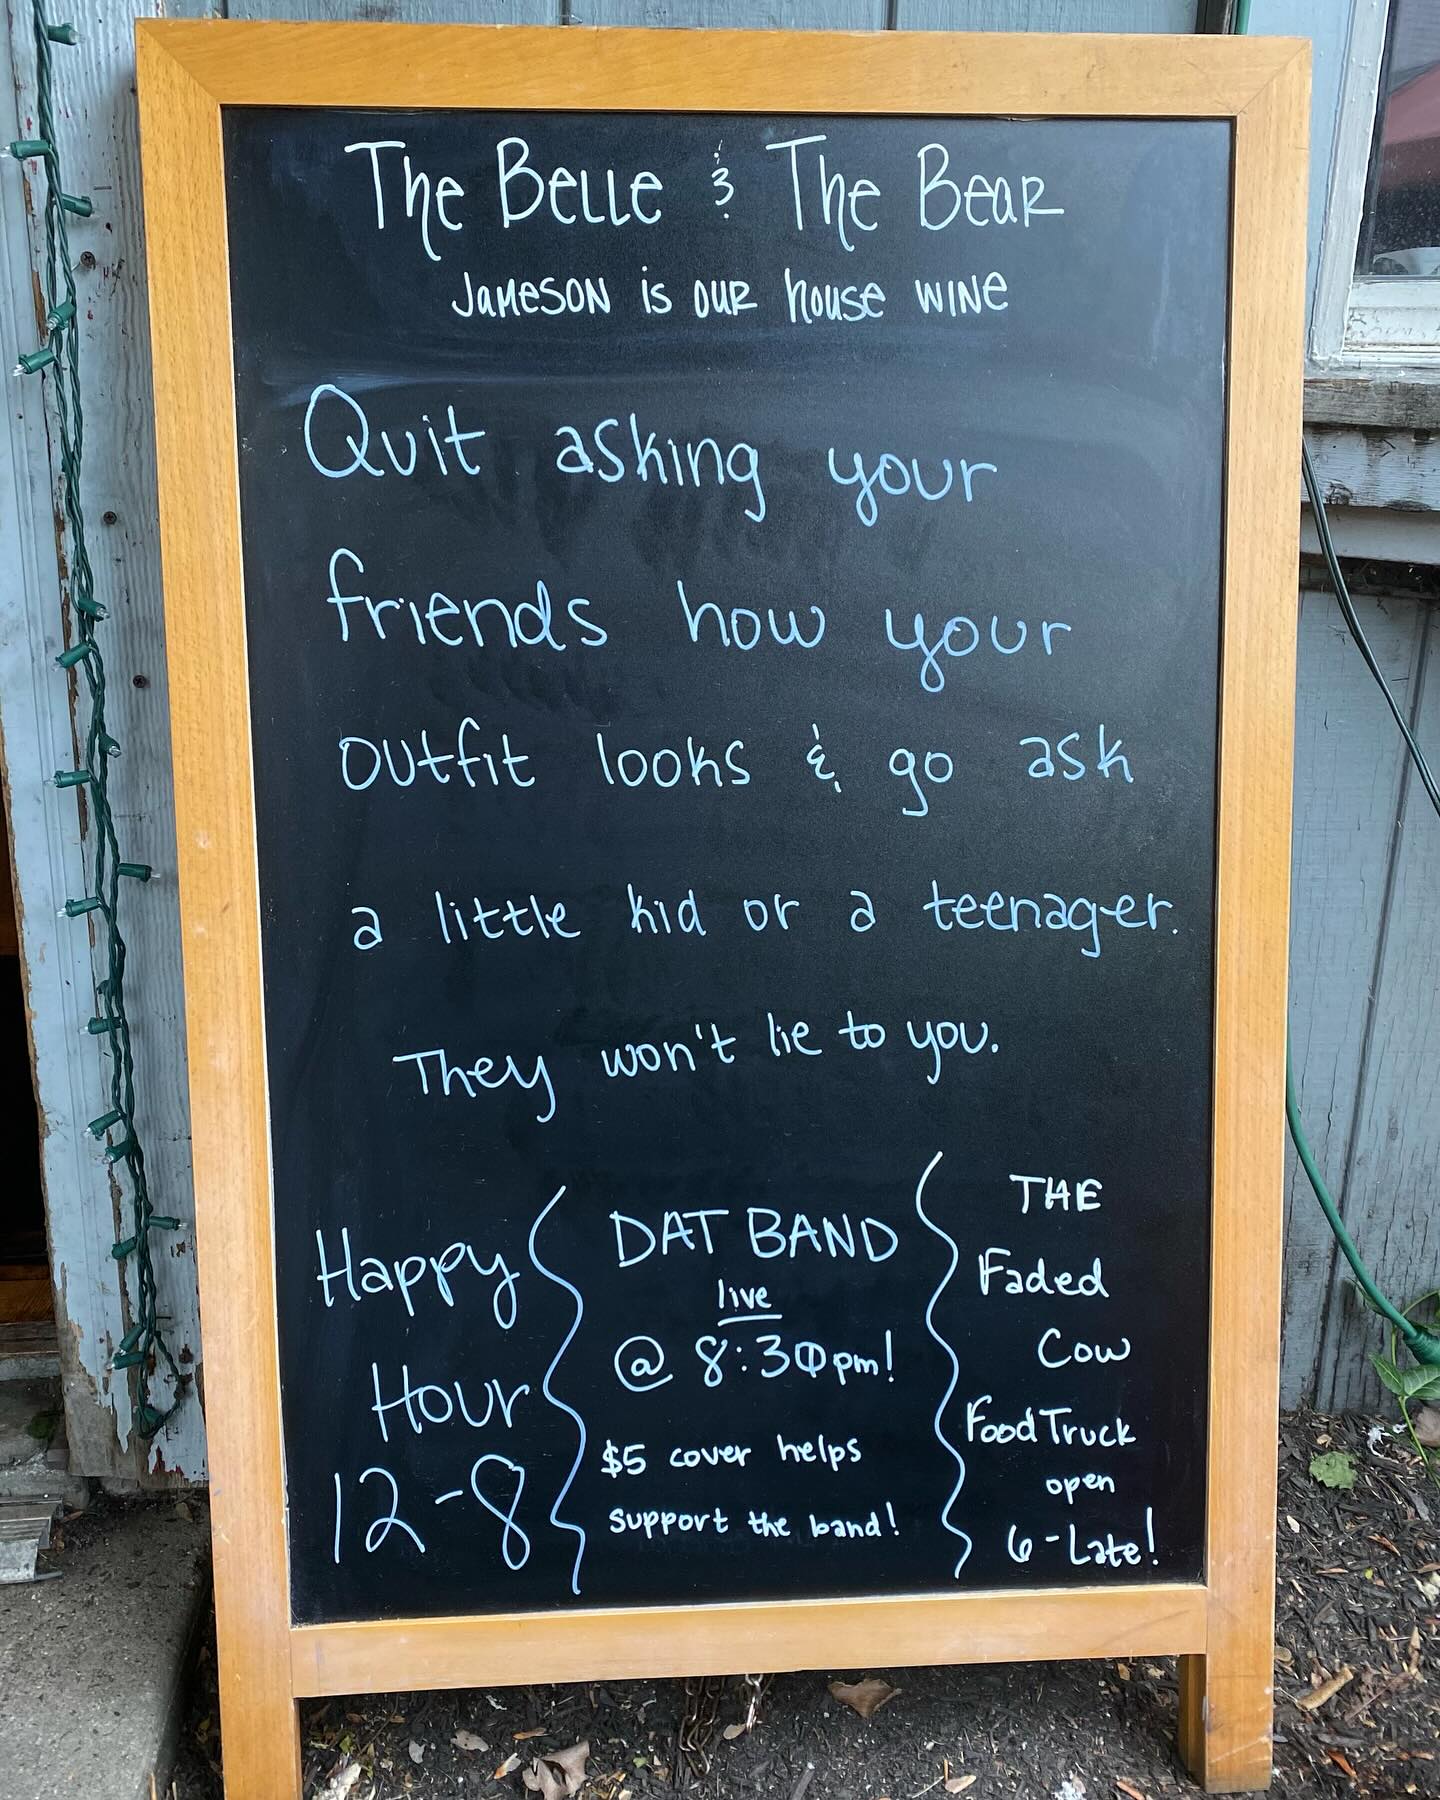 The Belle & The Bear
Jameson is our house wine
Quit asking your
friends how your
outfit looks & go ask
a little kid or a teenager.
They won't lie to you.
Happy
Hour
12-8
DAT BAND
live
@ 8:30pm!
$5 cover helps
support the band!
THE
Faded
Cow
Food Truck
open
6-Late!